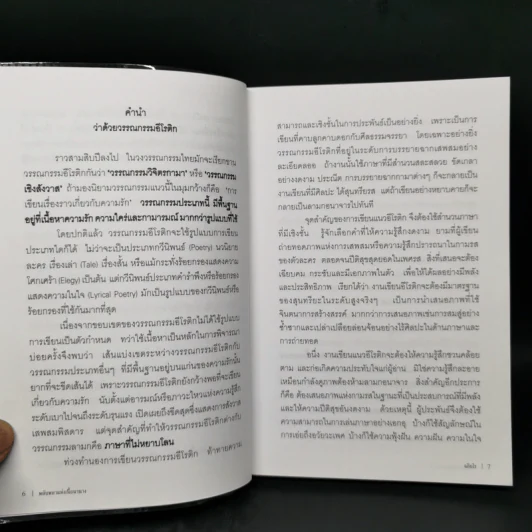 คำนำ
ว่าด้วยวรรณกรรมอีโรติก
ราวสามสิบปีลงไป ในวงวรรณกรรมไทยมักจะเรียกขาน
วรรณกรรมอีโรติกกันว่า "วรรณกรรมวิจิตรกามา" หรือ "วรรณกรรม
เชิงสังวาส" ถ้ามองนิยามวรรณกรรมแนวนี้ในมุมกว้างก็คือ "การ
เขียนเรื่องราวเกี่ยวกับความรัก" วรรณกรรมประเภทนี้ มีพื้นฐาน
อยู่ที่เนื้อหาความรัก ความใคร่และกามารมณ์ มากกว่ารูปแบบที่ใช้
โดยปกติแล้ว วรรณกรรมอีโรติกจะใช้รูปแบบการเขียน
ประเภทใดก็ได้ ไม่ว่าจะเป็นประเภทกวีนิพนธ์ (Poetry) นวนิยาย
ละคร เรื่องเล่า (Tale) เรื่องสั้น หรือแม้กระทั่งร้อยกรองแสดงความ
โศกเศร้า (Elegy) เป็นต้น แต่กวีนิพนธ์ประเภทคำรำพึงหรือร้อยกรอง
แสดงความในใจ (Lyrical Poetry) มักเป็นรูปแบบของกวีนิพนธ์หรือ
ร้อยกรองที่ใช้กันมากที่สุด
เนื่องจากขอบเขตของวรรณกรรมอีโรติกไม่ได้ใช้รูปแบบ
การเขียนเป็นตัวกำหนด ทว่าใช้เนื้อหาเป็นหลักในการพิจารณา
บ่อยครั้งจึงพบว่า เส้นแบ่งเขตระหว่างวรรณกรรมอีโรติกกับ
วรรณกรรมประเภทอื่นๆ ที่มีพื้นฐานอยู่บนแก่นของความรักนั้น
ยากที่จะขีดเส้นได้ เพราะวรรณกรรมอีโรติกยังกว้างพอที่จะเขียน
เกี่ยวกับความรัก นับตั้งแต่อารมณ์หรือภาวะไหวแห่งความรู้สึก
ระดับเบาไปจนถึงระดับรุนแรง เปิดเผยถึงขีดสุดซึ่งแสดงการสังวาส
เสพสมพิสดาร แต่จุดสำคัญที่ทำให้วรรณกรรมอีโรติกต่างกับ
วรรณกรรมลามกคือ ภาษาที่ไม่หยาบโลน
ท่วงทำนองการเขียนวรรณกรรมอีโรติก ท้าทายความ
6 |
สามารถและเชิงชั้นในการประพันธ์เป็นอย่างยิ่ง เพราะเป็นการ
เขียนที่คาบลูกคาบดอกกับศีลธรรมจรรยา โดยเฉพาะอย่างยิ่ง
วรรณกรรมอีโรติกที่อยู่ในระดับการบรรยายฉากเสพสมอย่าง
ละเอียดลออ ถ้างานนั้นใช้ภาษาที่มีสำนวนสละสลวย ขัดเกลา
อย่างงดงาม ประณีต การบรรยายฉากกามาต่างๆ ก็จะกลายเป็น
งานเขียนที่มีศิลปะ ได้สุนทรียรส แต่ถ้าเขียนอย่างหยาบคายก็จะ
กลายเป็นลามกอนาจารไปทันที
จุดสำคัญของการเขียนแนวอีโรติก จึงต้องใช้สำนวนภาษา
ที่มีเชิงชั้น รู้จักเลือกคำที่ให้ความรู้สึกงดงาม ยามที่ผู้เขียน
ถ่ายทอดภาพแห่งการเสพสมหรือความรู้สึกปรารถนาในกามรส
ของตัวละคร ตลอดจนปีติสุขสุดยอดในเพศรส สิ่งที่เสนอจะต้อง
เฉียบคม กระชับและมีเอกภาพในตัว เพื่อให้ได้ผลอย่างมีพลัง
และประสิทธิภาพ เรียกได้ว่า งานเขียนอีโรติกจะต้องมีมาตรฐาน
ของสุนทรียะในระดับสูงจริงๆ เป็นการนำเสนอภาพที่ใช้
จินตนาการสร้างสรรค์ มากกว่าการเสนอภาพเช่นการสมสู่อย่าง
ซ้ำซากและเปล่าเปลือยล่อนจ้อนอย่างไร้ศิลปะในด้านภาษาและ
การถ่ายทอด
อนึ่ง งานเขียนแนวอีโรติกจะต้องให้ความรู้สึกชวนคล้อย
ตาม และก่อเกิดความประทับใจแก่ผู้อ่าน มิใช่ความรู้สึกละอาย
เหมือนกำลังดูภาพต้องห้ามลามกอนาจาร สิ่งสำคัญอีกประการ
ก็คือ ต้องเสนอภาพแห่งกามรสในฐานะที่เป็นประสบการณ์ที่มีพลัง
และให้ความปีติสุขอันงดงาม ด้วยเหตุนี้ ผู้ประพันธ์จึงต้องใช้
ความสามารถในการเล่นภาษาอย่างเอกอุ บ้างก็ใช้สัญลักษณ์ใน
การเอ่ยถึงอวัยวะเพศ บ้างก็ใช้ความฟุ้งฝัน ความฝัน ความในใจ
| 7